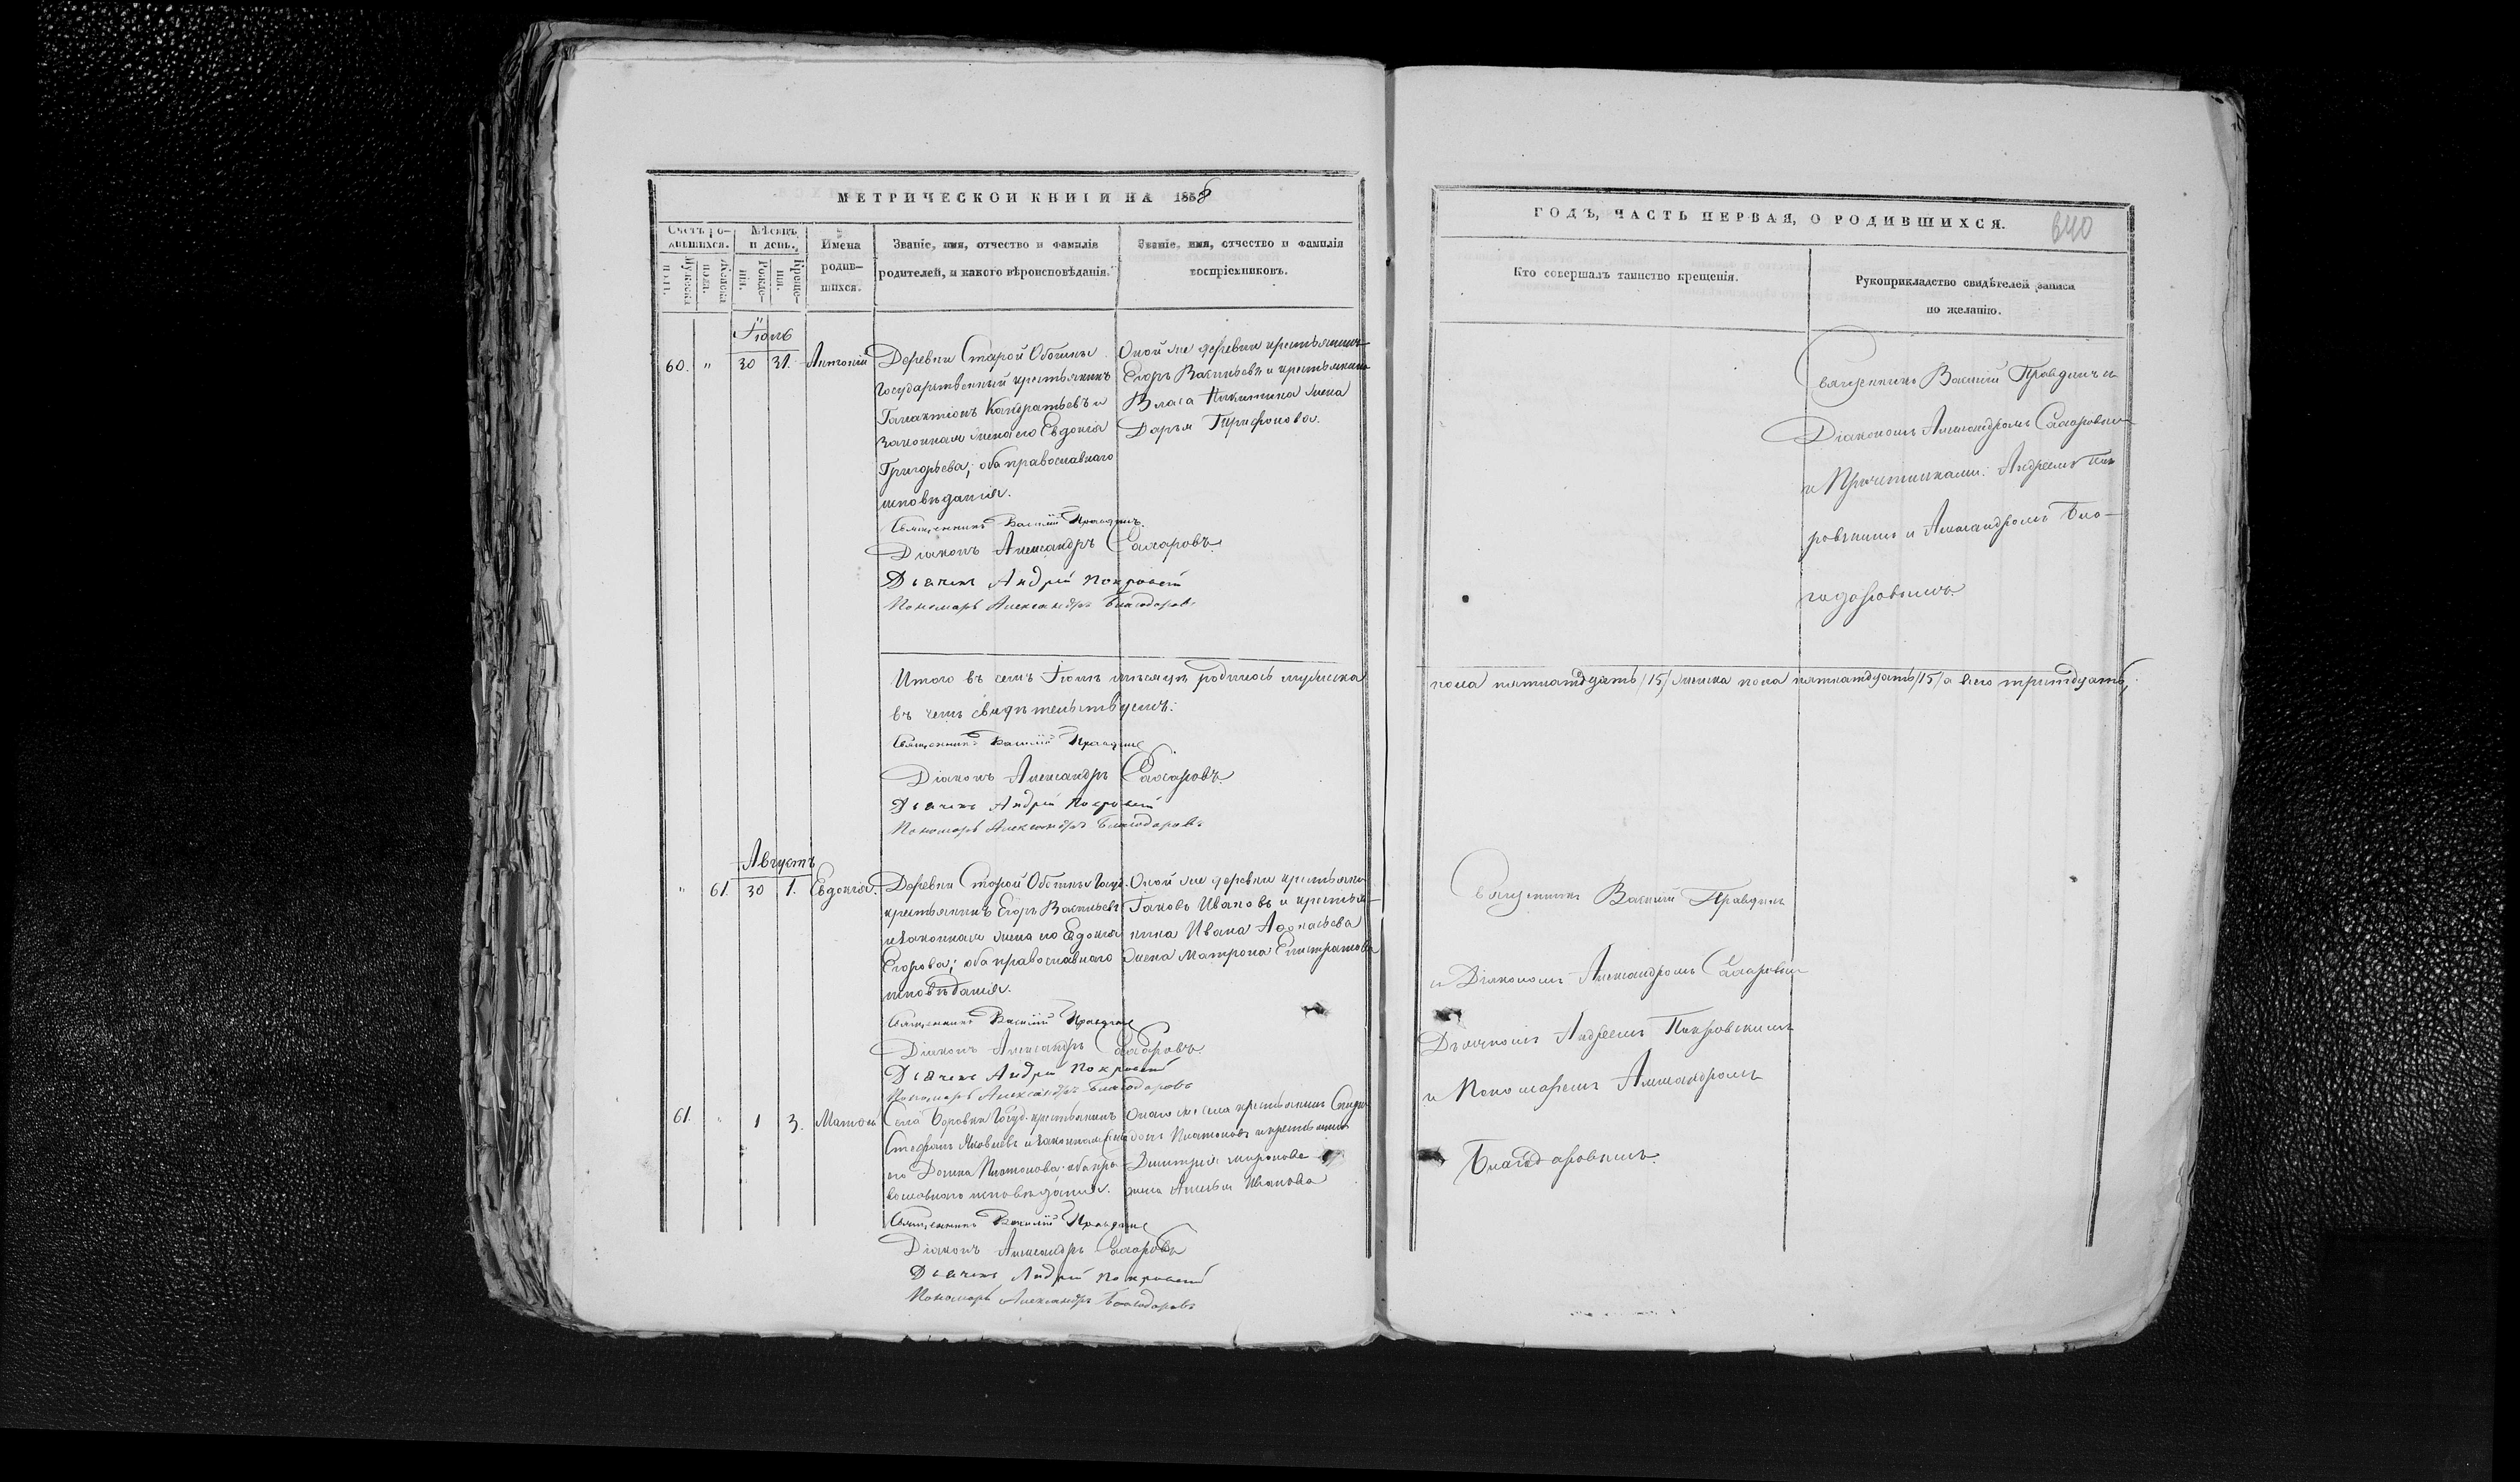 МЕТРИЧЕСКОЙ КНИГИ НА 1858
Счетъ ро-
дившихся.
Мужеска
пола.
Женска
пола.
Мѣсяцъ
и день.
Рожде-
нія.
Креще-
нія.
Имена
родив-
шихся.
Званіе, имя, отчество и фамилія
родителей, и какого вѣроисповѣданія.
Званіе, имя, отчество и фамилія
воспріемниковъ.
Іюль
60. " 30 31. Антоній
Деревни Старой
Государственный крестьянинъ
Галактіонъ Кандратьевъ и
законная жена его Евдокія
Григорьева; оба православнаго
исповѣданія.
Оной же деревни крестьянинъ
Егоръ Васильевъ и крестьянина
Власа Никитина жена
Дарья Трифонова.
Священникъ Василій Правдинъ.
Діаконъ Александръ Сахаровъ.
Дьячекъ Андрей Покровскій
Пономарь Александръ Благодаровъ
Итого въ семъ Іюлѣ мѣсяцѣ родилось мужеска
въ чемъ свидѣтельствуемъ:
Священникъ Василій Правдинъ
Діаконъ Александръ Сахаровъ.
Дьячекъ Андрей Покровскій
Пономарь Александръ Благодаровъ
Августъ
" 61. 30 1. Евдокія.
Деревни Старой Госуд.
крестьянинъ Егоръ Васильевъ
и законная жена его Евдокія
Егорова; оба православнаго
исповѣданія.
Оной же деревни крестьянинъ
Іаковъ Ивановъ и крестья-
нина Ивана Афонасьева
жена Матрона Епистратова
Священникъ Василій Правдинъ
Діаконъ Александръ Сахаровъ
Дьячекъ Андрей Покровскій
Пономарь Александръ Благодаровъ
61. " 1 3.
Села Боровки Госуд. крестьянинъ
Стефанъ Яковлевъ и законная жена
его Домна Платонова оба пра-
вославнаго исповѣданія.
Онаго же села крестьянинъ
Платоновъ и крестьянина
Димитрія Миронова
жена Ивановa
Священникъ Василій Правдинъ
Діаконъ Александръ Сахаровъ
Дьячекъ Андрей Покровскій
Пономарь Александръ Благодаровъ
ГОДЪ, ЧАСТЬ ПЕРВАЯ, О РОДИВШИХСЯ.
640
Кто совершалъ таинство крещенія.
Рукоприкладство свидѣтелей записи
по желанію.
Священникъ Василій Правдинъ и
Діакономъ Александромъ Сахаровымъ
и Причетниками: Андреемъ Пок
ровскимъ и Александромъ Бла-
годаровымъ.
пола пятнатдцать /15/ женска пола пятнатдцать /15/ а всего тритдцать,
Священникъ Василій Правдинъ
и Діакономъ Александромъ Сахаровымъ
Дьячкомъ Андреемъ Покровскимъ
и Пономаремъ Александромъ
Благодаровымъ.